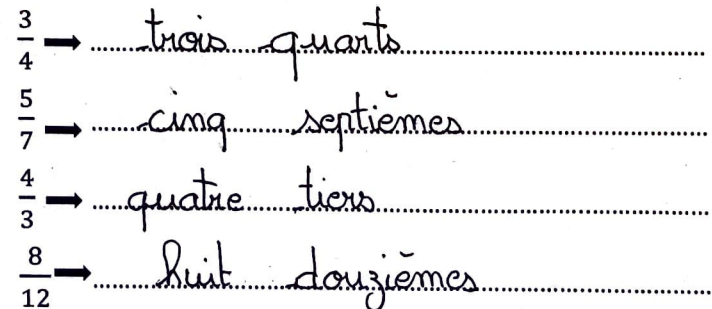 3/4 → trois quarts
5/7 → cinq septièmes
4/3 → quatre tiers
8/12 → huit douzièmes